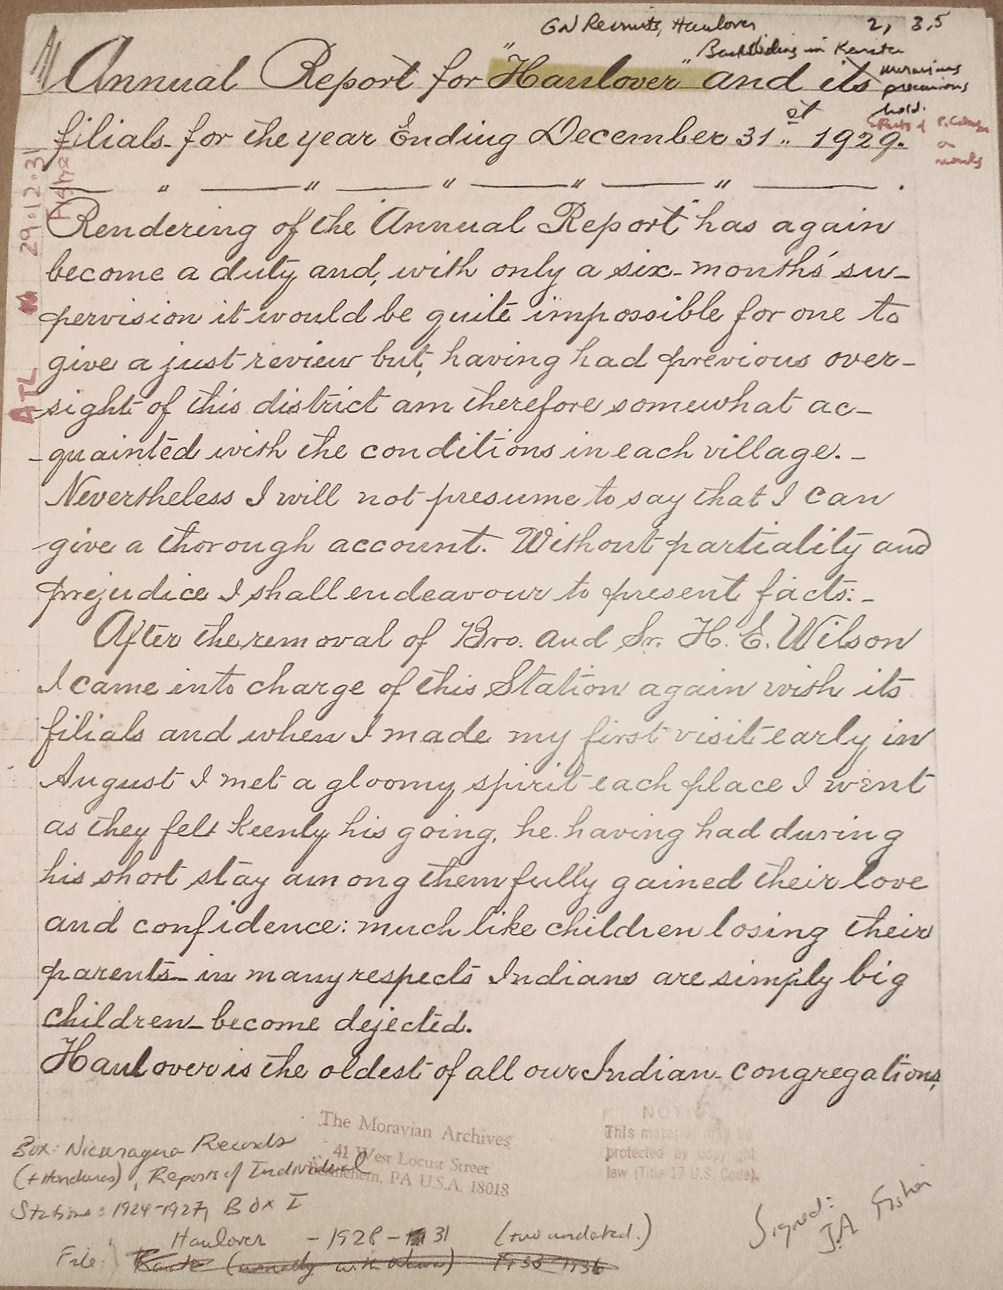 GN Recruits, Haulover 2, 3, 5
Backsliding in Karata
Moravians
precarious
hold.
Effects of P. Cabezas
on
morals
Annual Report for "Haulover" and its
filials for the year Ending December 31st 1929.
Rendering of the "Annual Report" has again
become a duty and, with only a six-months' su-
pervision it would be quite impossible for one to
give a just review but, having had previous over-
sight of this district am therefore somewhat ac-
-quainted with the conditions in each village.-
Nevertheless I will not presume to say that I can
give a thorough account. Without partiality and
prejudice I shall endeavour to present facts:-
After the removal of Bro. and Sr. H. E. Wilson
I came into charge of this Station again with its
filials and when I made my first visit early in
August I met a gloomy spirit each place I went
as they felt keenly his going, he having had during
his short stay among them fully gained their love
and confidence: much like children losing their
parents- in many respects Indians are simply big
children- become dejected.
Haulover is the oldest of all our Indian congregations,
ATL 29.12.31
Fisher
The Moravian Archives
41 West Locust Street
Bethlehem, PA U.S.A. 18018
NOTICE
This material may be
protected by copyright
law (Title 17 U.S. Code).
Box: Nicaragua Records
(+ Honduras), Reports of Individual
Stations: 1924-1927, Box I
Haulover - 1928-31 (two undated.)
File:
Signed:
J.A Fisher